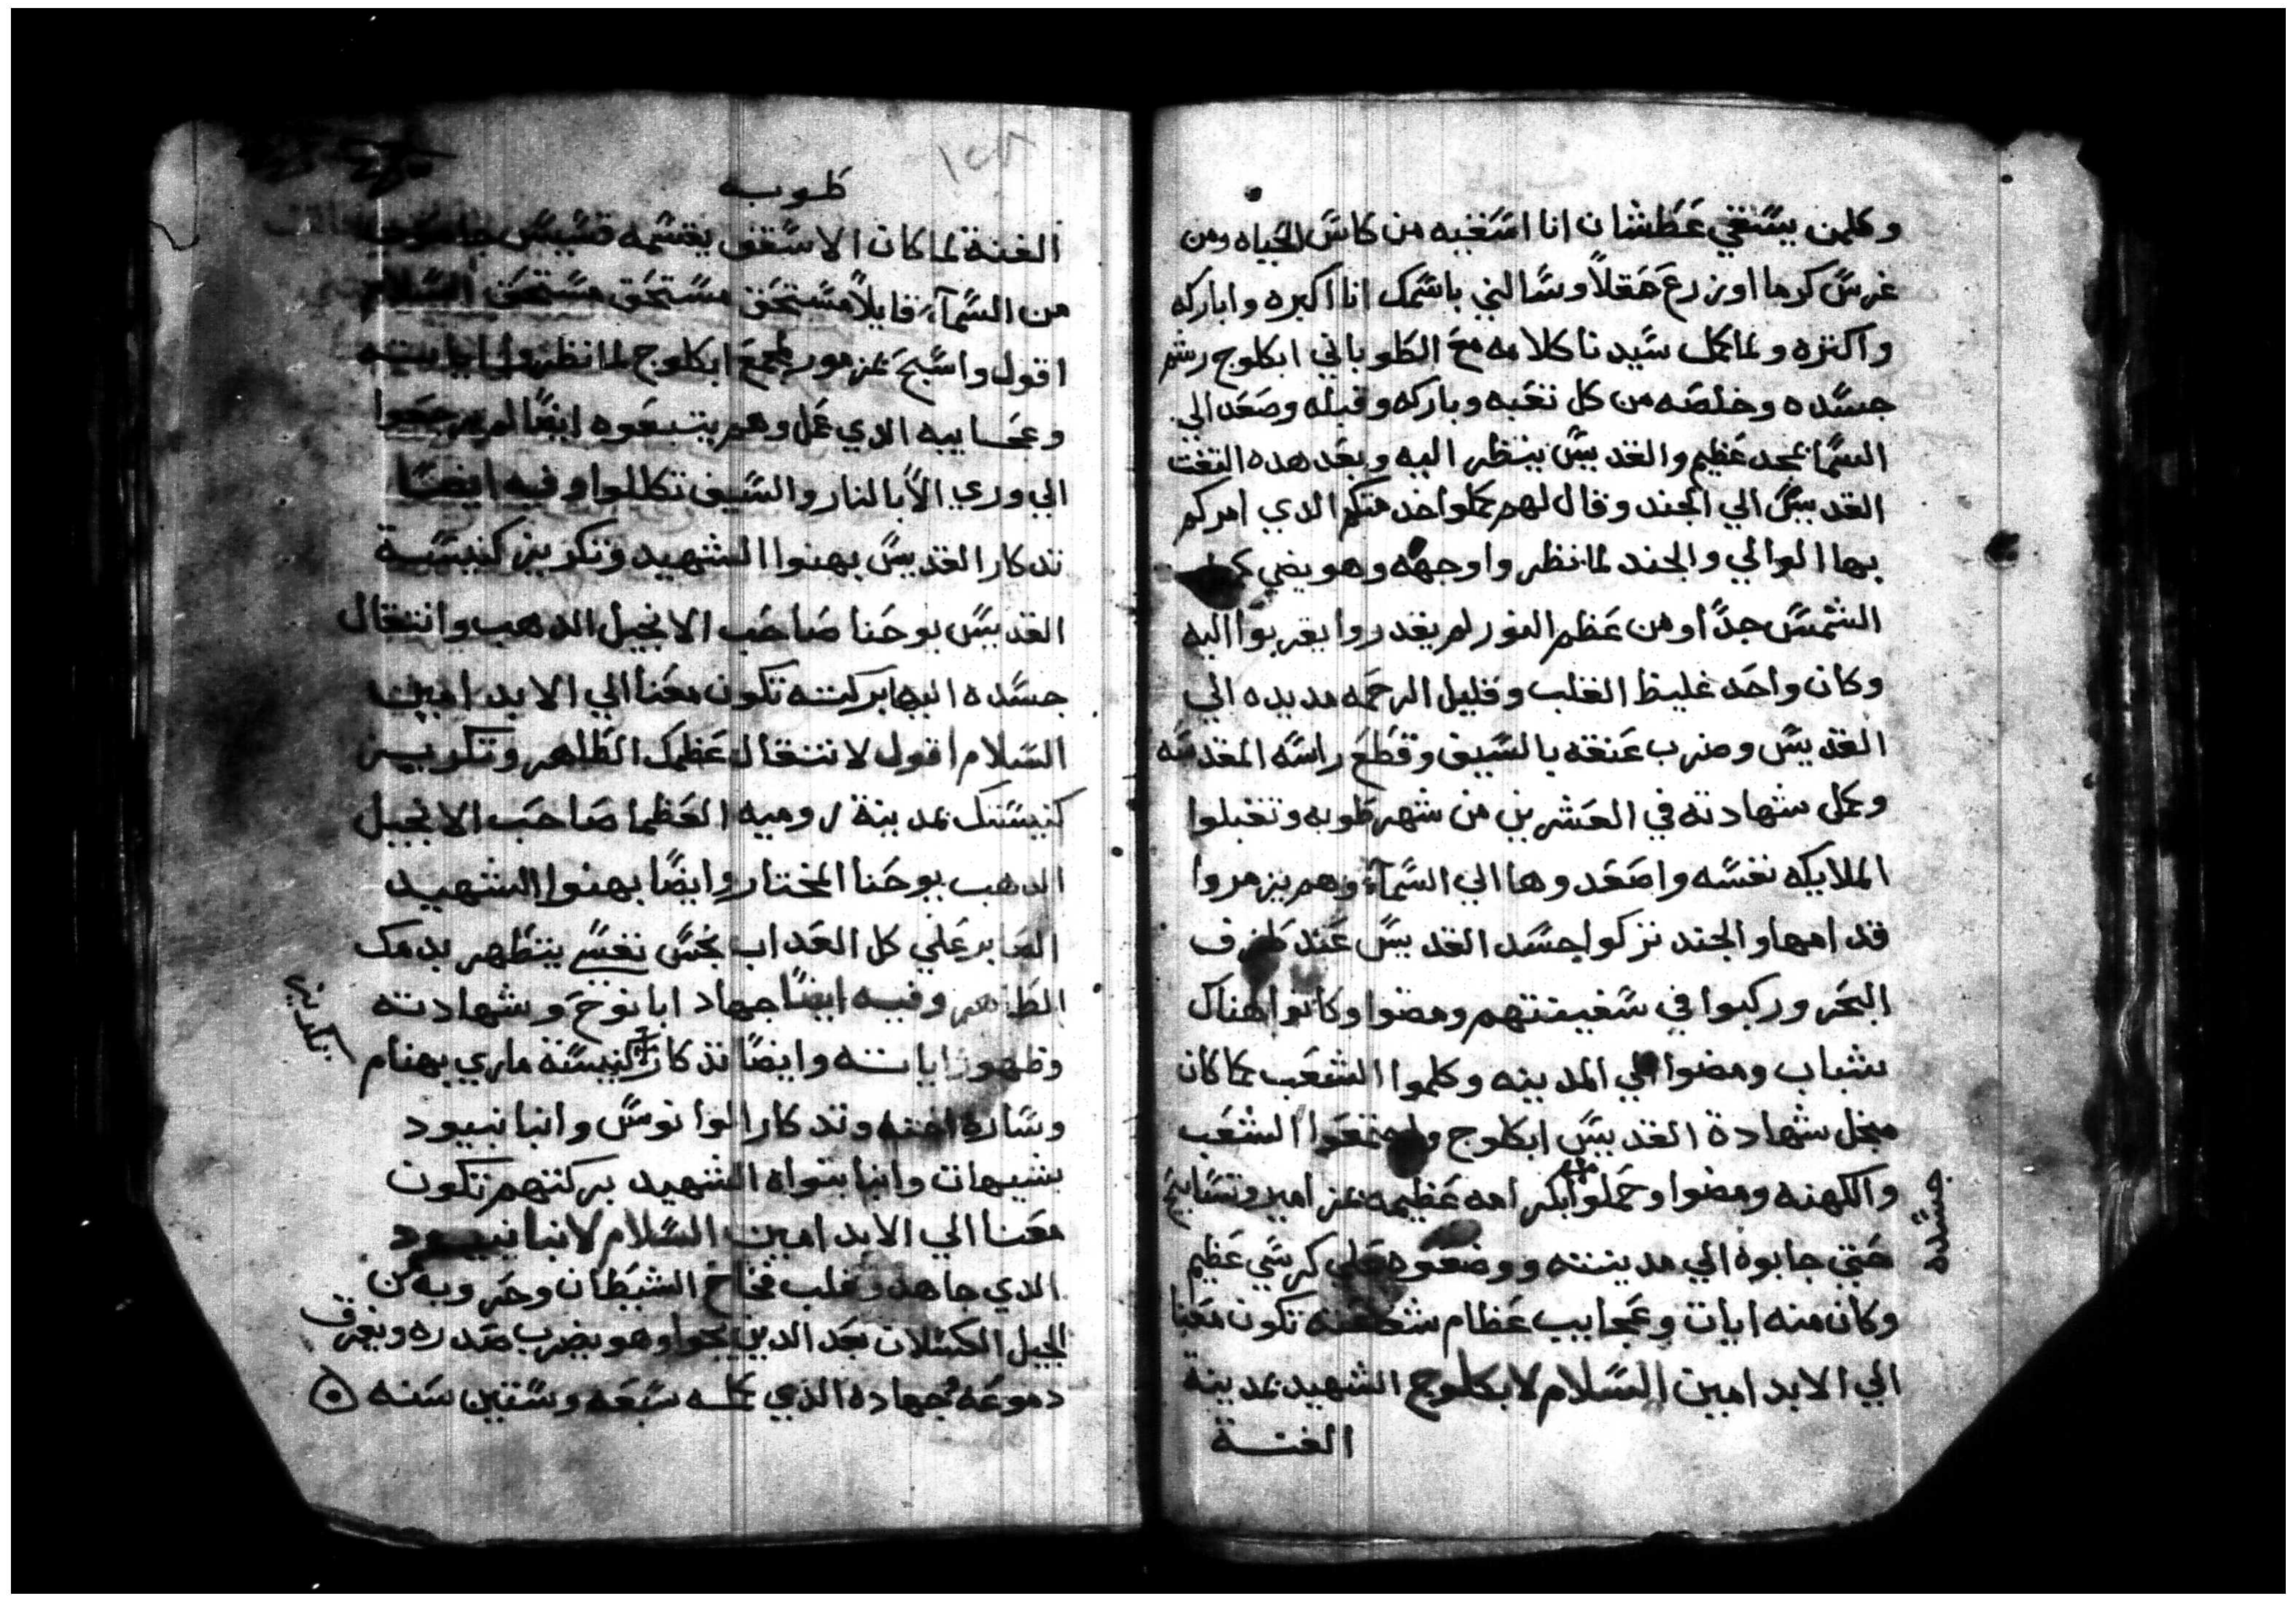 وكلمن يسقي عطشان انا اسقيه من كاس الحياه ومن
غرس كرما او زرع حقلاً وسالني باسمك انا اكبره واباركه
واكتره ولما كمل سيدنا كلامه مع الطوباني ابكلوج رشم
جسده وخلصه من كل تعبه وباركه وقبله وصعد الي
السما بمجد عظيم والقديس ينظر اليه وبعد هده التفت
القديس الي الجند وقال لهم كملوا خدمتكم الدي امركم
بها الوالي والجند لما نظروا وجهه وهو يضي
الشمس جداً ومن عظم النور لم يقدروا يقربوا اليه
وكان واحد غليظ القلب وقليل الرحمه مد يده الي
القديس وضرب عنقه بالسيف وقطع راسه المقدسه
وكمل شهادته في العشرين من شهر طوبه وتقبلوا
الملايكه نفسه واصعدوها الي السمآء وهم يزمروا
قدامها والجند تركوا جسد القديس عند طرف
البحر وركبوا في سفينتهم ومضوا وكانوا هناك
شباب ومضوا الي المدينه وكلموا الشعب بما كان
مجل شهادة القديس ابكلوج واجتمعوا الشعب
والكهنه ومضوا وحملوا ابكرامه عظيمه بمزامير وتسابيح
جسده
حتي جابوه الي مدينته ووضعوه علي كرسي عظيم
وكان منه ايات وعجايب عظام شفاعته تكون معنا
الي الابد امين السلام لابكلوج الشهيد بمدينة
الفنة
١٥٨
طوبه
الفنة لما كان الاسقف يقسمه قسيس
من السمآء قايلاً مستحق مستحق مستحق السلام
اقول واسبح بمزمور لجمع ابكلوج لما نظروا اياته
وعجايبه الدي عمل وهم يتبعوه ايضا لم يرجعوا
الي وري الا بالنار والسيف تكللوا وفيه ايضاً
تدكار القديس بهنوا الشهيد وتكريز كنيسة
القديس يوحنا صاحب الانجيل الدهب وانتقال
جسده اليها بركته تكون معنا الي الابد امين
السلام اقول لانتقال عظمك الطاهر وتكريز
كنيستك بمدينة روميه العظما صاحب الانجيل
الدهب يوحنا المختار وايضًا بهنوا الشهيد
الصابر علي كل العداب نجس نفسي يتطهر بدمك
الطاهر وفيه ايضًا جهاد ابا نوخ وشهادته
وظهور اياته وايضًا تدكار كنيسة ماري بهنام
وساره اخته وتدكار الوانوس وانبا نبيود
بشيهات وانبا بتواه الشهيد بركتهم تكون
معنا الي الابد امين السلام لانبا نبيود
الدي جاهد وغلب فخاخ الشيطان وحروبه كن
لجيل الكسلان بعد الدين وهو يضرب صدره ويغرف
دموعه بجهاده الذي كمله سبعه وستين سنه